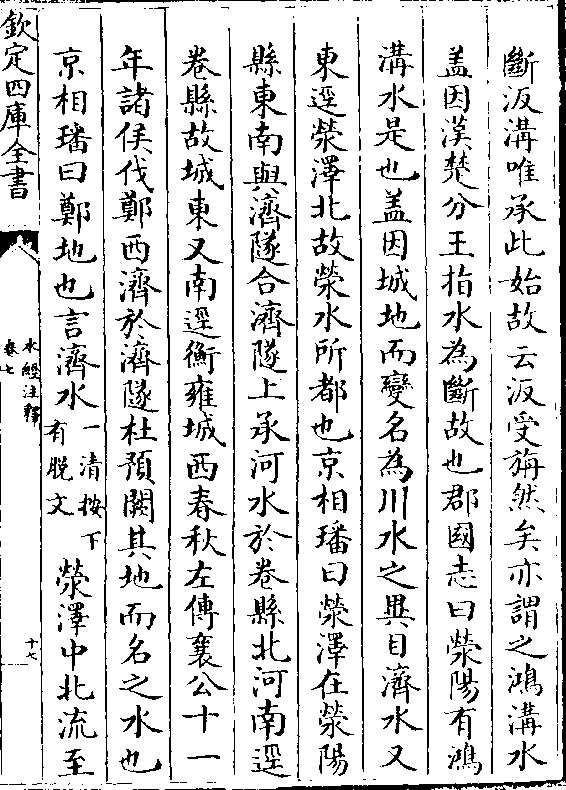 斷汳溝唯承此始故云汳受旃然矣亦謂之鴻溝水
盖因漢楚分王指水為斷故也郡國志曰滎陽有鴻
溝水是也盖因城地而變名為川水之異目濟水又
東逕滎澤北故滎水所都也京相璠曰滎澤在滎陽
縣東南與濟隧合濟隧上承河水於卷縣北河南逕
卷縣故城東又南逕衡雍城西春秋左傳襄公十一
年諸侯伐鄭西濟於濟隧杜預闕其地而名之水也
京相璠曰鄭地也言濟水一清按下有脱文滎澤中北流至
欽定四庫全書
水經注釋
卷七
十七